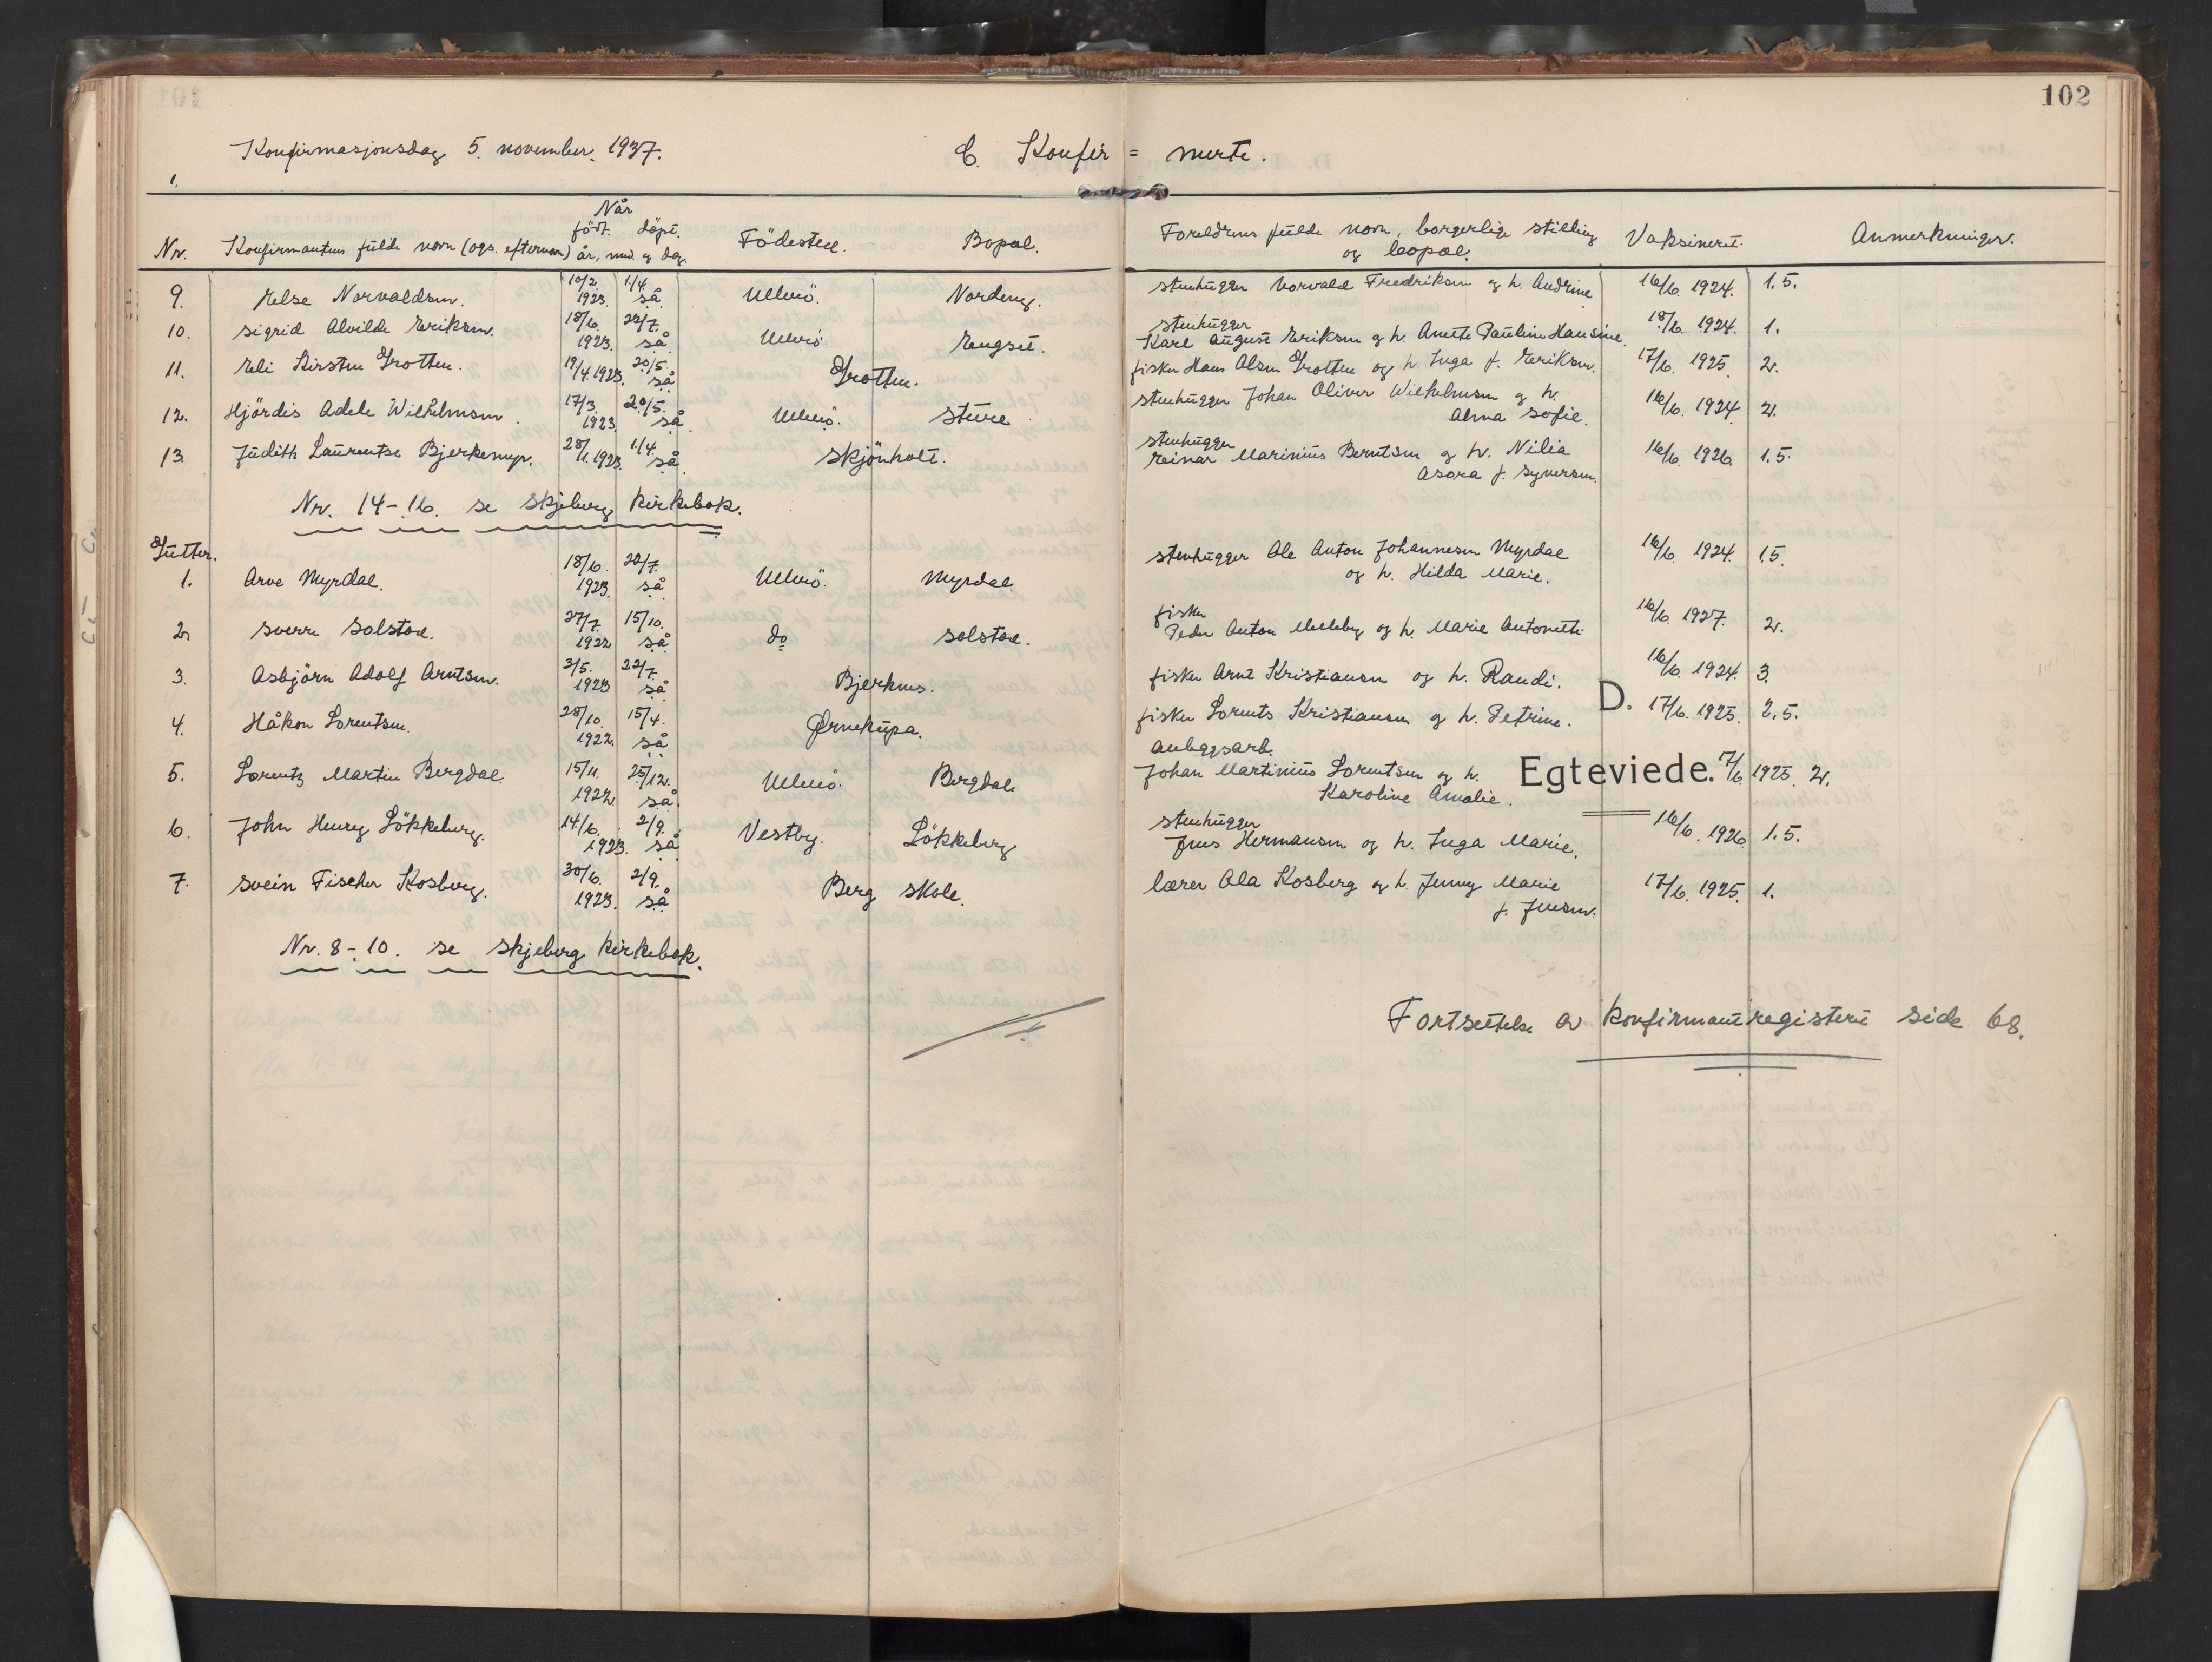 102
Konfirmasjonsdag 5. november. 1937. C. Konfir = merte.
1.
Nr. Konfirmantens fulde navn (ogs. efternavn) Når født. döpt. år, mnd. og dag. Födested. Bopæl. Foreldrenes fulde navn, borgerlige stilling og bopæl. Vaksinert. Anmerkninger.
9. Else Norvaldsen. 10/2. 1923. 1/4. så Ullerö. Nordeng. stenhugger Norvald Fredriksen og h. Andrine 16/6. 1924. 1.5.
10. Sigrid Alvilde Eriksen. 18/6. 1923. 22/7. så Ullerö Engset. stenhugger
Karl August Eriksen og h. Anette Pauline Hansine. 18/6. 1924. 1.
11. Eli Kirsten Grotten. 19/4. 1923. 20/5. så Grotten. fisker Hans Olsen Grotten og h Inga f. Eriksen. 17/6. 1925. 2.
12. Hjördis Adele Wilhelmsen. 17/3. 1923. 20/5. så Ullerö. Sture stenhugger Johan Oliver Wilhelmsen og h.
Alma Sofie. 16/6. 1924 2.
13. Judith Laurentse Bjerkemyr. 28/1. 1923. 1/4. så Skjönholt. stenhugger
Reinar Marinius Berntsen og h. Nilia
Asora f. Syversen. 16/6. 1926. 1.5.
Nr. 14-16. se Skjeberg kirkebok.
Gutter.
1. Arve Myrdal. 18/6. 1923. 22/7. så Ullerö. Myrdal. stenhugger Ole Anton Johannesen Myrdal
og h. Hilda Marie. 16/6. 1924. 1.5.
2. Sverre Solstad. 27/7. 1922 15/10. så do Solstad. fisker
Peder Anton Melleby og h. Marie Antonette 16/6. 1927. 2.
3. Asbjörn Adolf Arntsen. 3/5. 1923 22/7. så Bjerknes. fisker Arnt Kristiansen og h. Randi. 16/6. 1924. 3.
D.
4. Håkon Lorentsen. 28/10. 1922. 15/4. så Ørnekupa. fisker Lorents Kristiansen og h. Petrine. 17/6. 1925. 2.5.
5. Lorentz Martin Bergdal. 15/11. 1922. 25/12. så. Ullerö. Bergdal anlegsarb.
Johan Martinius Lorentsen og h.
Karoline Amalie. 17/6 1925. 2.
Egteviede.
6. John Henry Lökkeberg. 14/6. 1923. 2/9. så Vestby. Lökkeberg stenhugger
Jens Hermansen og h. Inga Marie. 16/6. 1926 1.5.
7. Svein Fischer Kosberg. 30/6. 1923. 2/9. så Berg skole. lærer Ola Kosberg og h. Jenny Marie
f. Jensen. 17/6. 1925. 1.
Nr. 8-10. se Skjeberg kirkebok.
Fortsettelse av konfirmantregisteret side 68.